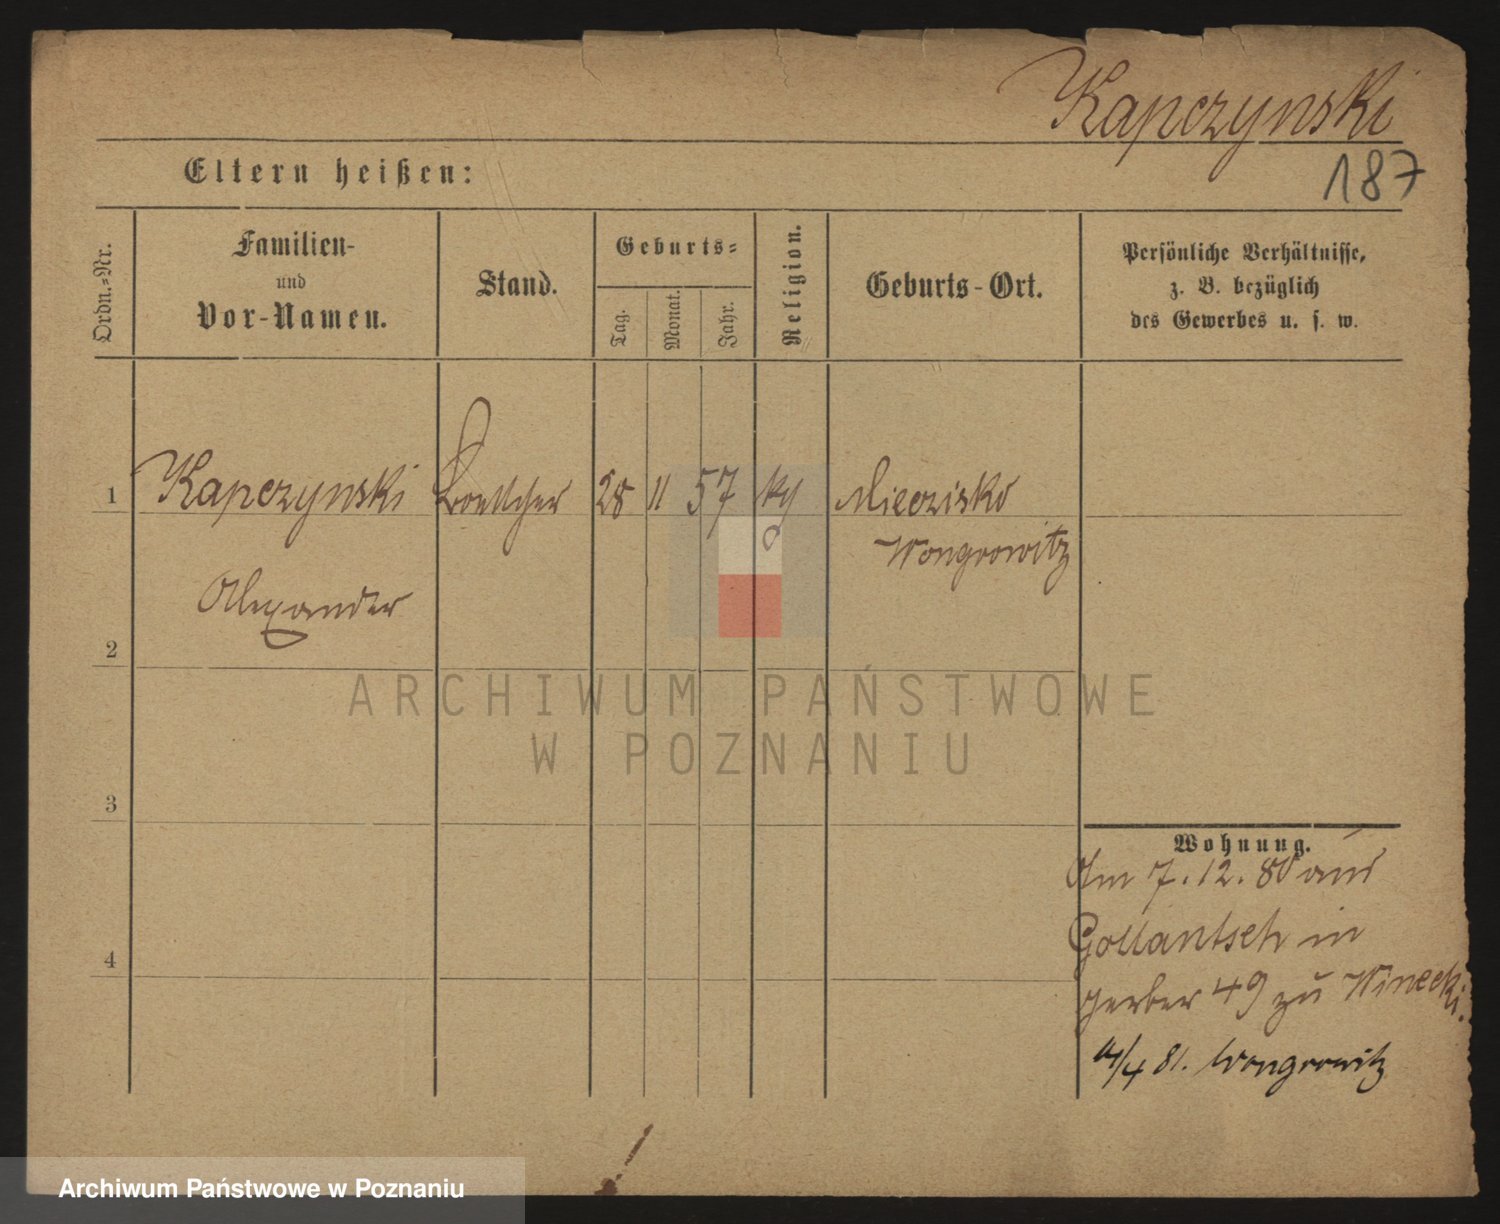 Kapczynski
187
Eltern heißen:
Ordn.=Nr.
Familien-
und
Vor-Namen.
Stand.
Geburts=
Tag.
Monat.
Jahr.
Religion.
Geburts-Ort.
Persönliche Verhältnisse,
z. B. bezüglich
des Gewerbes u. s. w.
1 Kapczynski Boettcher 28 11 57 Mieczisko
Wongrowitz
Alexander
2
ARCHIWUM PAŃSTWOWE
W POZNANIU
3
Wohnung.
Am 7.12.80 aus
Gollantsch in
4
gerber 49 zu Winecki.
/4 81. Wongrowitz
Archiwum Państwowe w Poznaniu